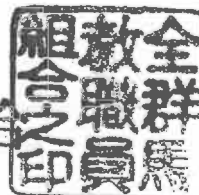 全群馬
教職員
組合之印